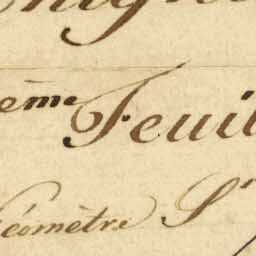 ème Feuil
Géomètre Sr